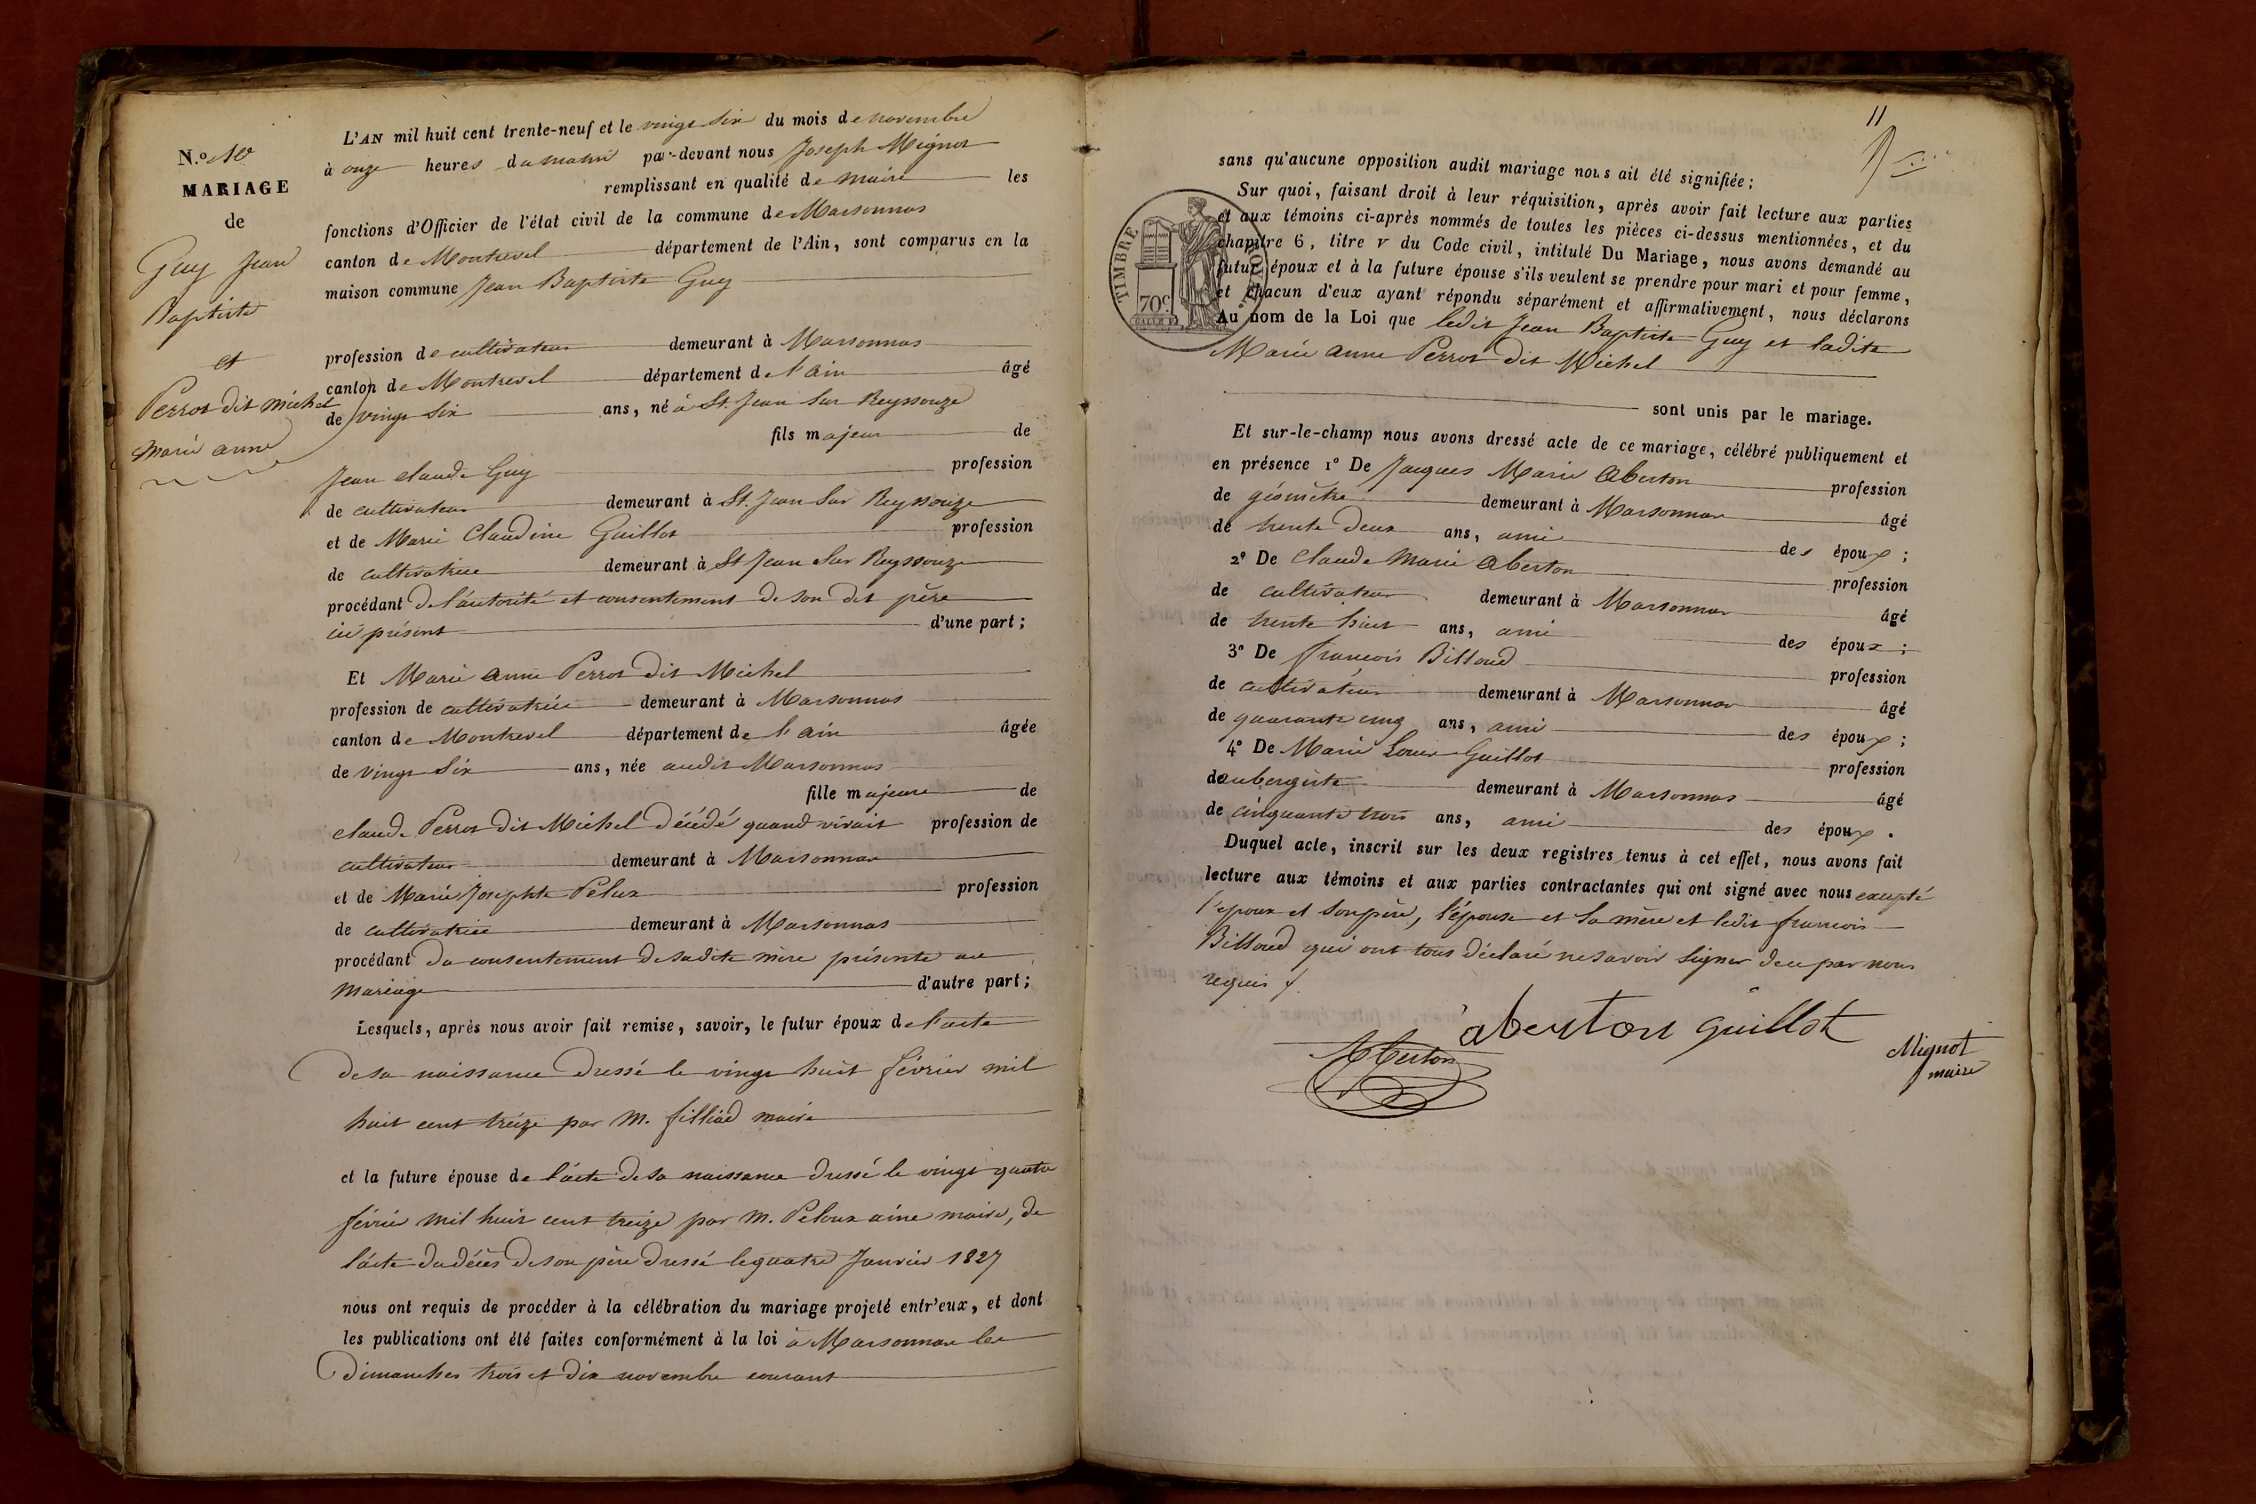 N.º 10
MARIAGE
de
Guy Jean
Baptiste
et
Perrot dit Michel
Marie anne
L'AN mil huit cent trente-neuf et le vingt six du mois de novembre
à onze heures du matin par-devant nous Joseph Mignot
remplissant en qualité de maire les
fonctions d'Officier de l'état civil de la commune de Marsonnas
canton de Montrevel département de l'Ain, sont comparus en la
maison commune Jean Baptiste Guy
profession de cultivateur demeurant à Marsonnas
canton de Montrevel département de l'ain âgé
de vingt six ans, né à St. Jean sur Reyssouze
fils majeur de
Jean claude Guy profession
de cultivateur demeurant à St. Jean sur Reyssouze
et de Marie Claudine Guillot profession
de cultivatrice demeurant à St Jean sur Reyssouze
procédant de l'autorité et consentement de son dit père
ici présent d'une part ;
Et Marie anne Perrot dit Michel
profession de cultivatrice demeurant à Marsonnas
canton de Montrevel département de l'ain âgée
de vingt six ans, née audit Marsonnas
fille majeure de
claude Perrot dit Michel décédé quand vivait profession de
cultivateur demeurant à Marsonnas
et de Marie Josephte Pelux profession
de cultivatrice demeurant à Marsonnas
procédant du consentement de sadite mère présente au
mariage d'autre part ;
Lesquels, après nous avoir fait remise, savoir, le futur époux de l'acte
de sa naissance dressé le vingt huit février mil
huit cent treize par M. filliod maire
et la future épouse de l'acte de sa naissance dressé le vingt quatre
février mil huit cent treize par M. Peloux aîné maire, de
l'acte du décès de son père dressé le quatre Janvier 1827
nous ont requis de procéder à la célébration du mariage projeté entr'eux, et dont
les publications ont été faites conformément à la loi à Marsonnas les
dimanches trois et dix novembre courant
11
sans qu'aucune opposition audit mariage nous ait été signifiée ;
Sur quoi, faisant droit à leur réquisition, après avoir fait lecture aux parties
et aux témoins ci-après nommés de toutes les pièces ci-dessus mentionnées, et du
chapitre 6, titre v du Code civil, intitulé Du Mariage, nous avons demandé au
futur époux et à la future épouse s'ils veulent se prendre pour mari et pour femme,
et chacun d'eux ayant répondu séparément et affirmativement, nous déclarons
Au nom de la Loi que ledit Jean Baptiste Guy et ladite
Marie anne Perrot dit Michel
sont unis par le mariage.
TIMBRE
70c.
Et sur-le-champ nous avons dressé acte de ce mariage, célébré publiquement et
en présence 1º De Jacques Marie Aberton profession
de géomètre demeurant à Marsonnas âgé
de trente deux ans, ami des époux ;
2º De Claude Marie Aberton profession
de cultivateur demeurant à Marsonnas âgé
de trente huit ans, ami des époux ;
3º De françois Billoud profession
de cultivateur demeurant à Marsonnas âgé
de quarante cinq ans, ami des époux ;
4º De Marie Louis Guillot profession
daubergiste demeurant à Marsonnas âgé
de cinquante trois ans, ami des époux .
Duquel acte, inscrit sur les deux registres tenus à cet effet, nous avons fait
lecture aux témoins et aux parties contractantes qui ont signé avec nous excepté
l'époux et son père, l'épouse et sa mère et ledit françois
Billoud qui ont tous déclaré ne savoir signer de ce par nous
requis
aberton guillot
Aberton
Mignot
maire